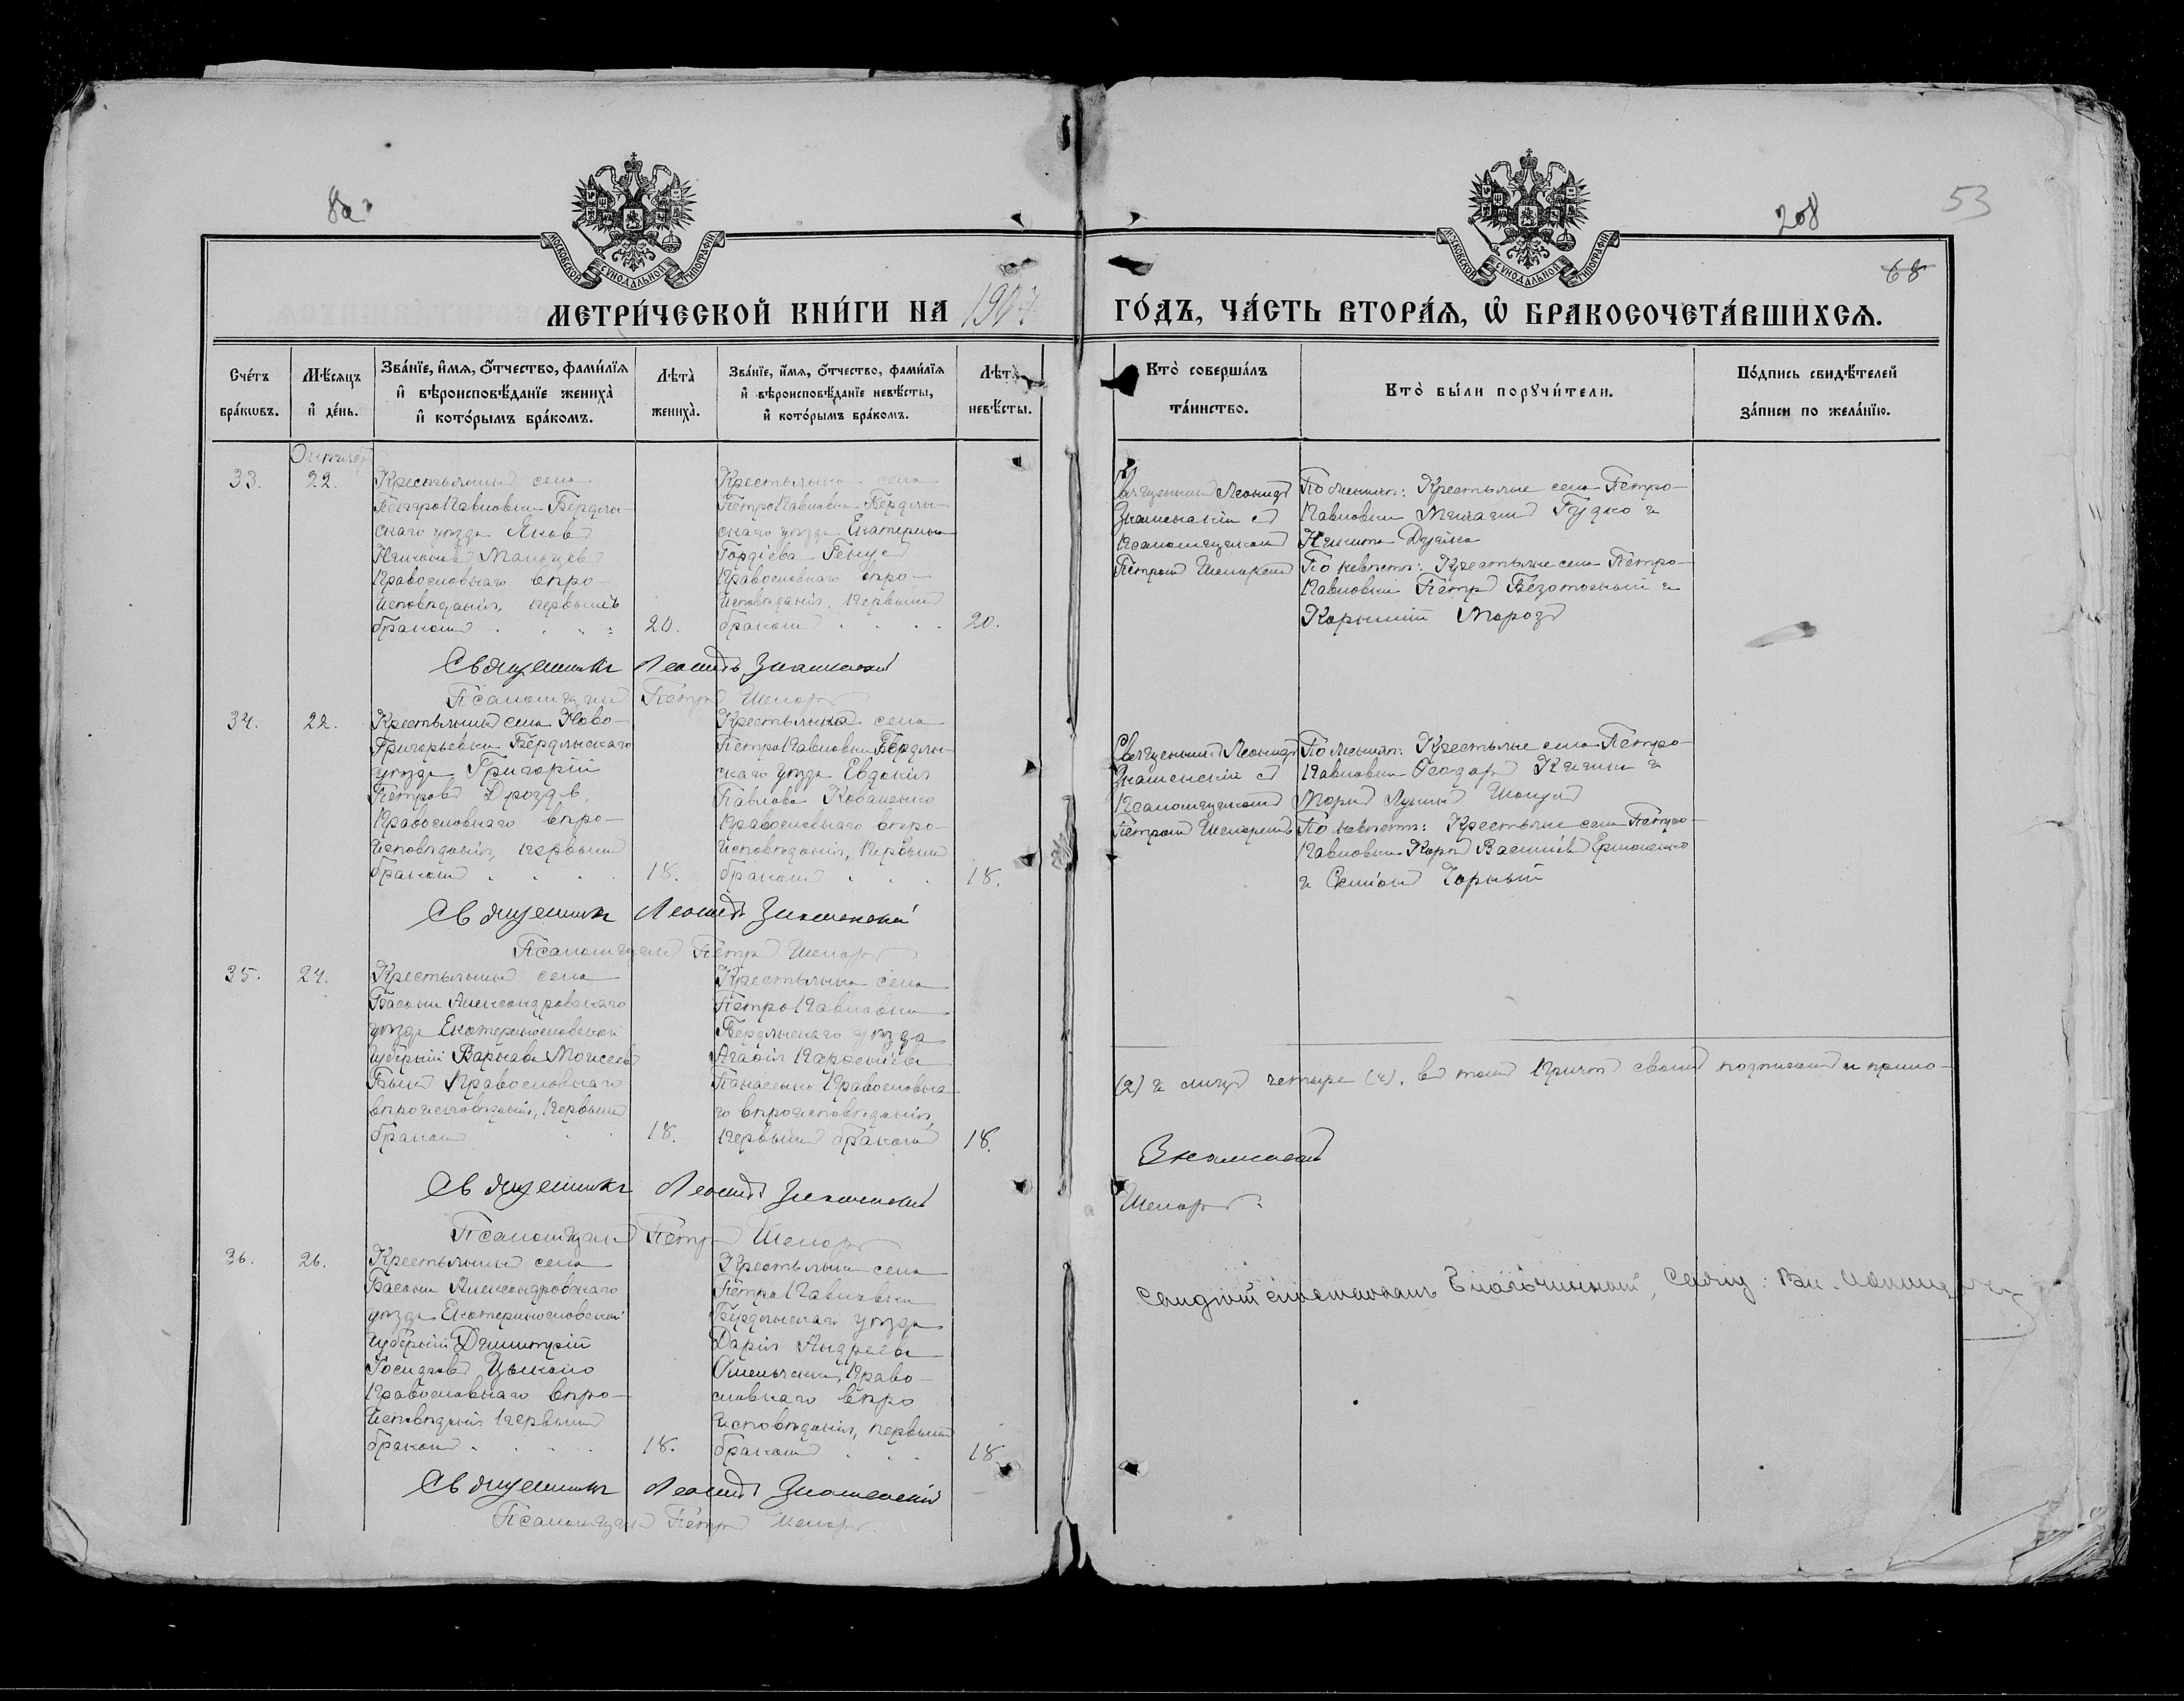 80
208
53
68
МОСКОВСКОЙ СУНОДАЛЬНОЙ ТИПОГРАФІИ
МОСКОВСКОЙ СУНОДАЛЬНОЙ ТИПОГРАФІИ
МЕТРИ́ЧЕСКОЙ КНИ́ГИ НА 1907
ГО́ДЪ, ЧА́СТЬ ВТОРА́Я, Ѡ҆ БРАКОСОЧЕТА́ВШИХСЯ.
Сче́тъ бра́кѡвъ.
Мѣ́сяцъ и҆ де́нь.
Зва́нїе, и҆́мя, ѻ҆́тчество, фами́лїя
и҆ вѣроисповѣ́данїе жениха̀
и҆ кото́рымъ бра́комъ.
Лѣта̀ жениха̀.
Зва́нїе, и҆́мя, ѻ҆́тчество, фами́лїя
и҆ вѣроисповѣ́данїе невѣ́сты,
и҆ кото́рымъ бра́комъ.
Лѣта̀ невѣ́сты.
Кто̀ соверша́лъ та́инство.
Кто̀ бы́ли порꙋчи́тели.
По́дпись свидѣ́телей
за́писи по жела́нїю.
Октябрь
33.
22.
Крестьянинъ села
ПетроПавловки Бердян-
скаго уѣзда Яковъ
Мальцевъ
Православнаго вѣро-
исповѣданія, первымъ
бракомъ
20.
Крестьянка села
ПетроПавловки Бердян-
скаго уѣзда Екатерина
Гордіева
Православнаго вѣро-
исповѣданія, первымъ
бракомъ
20.
Священникъ Леонидъ
Знаменскій съ
псаломщикомъ
Петромъ
По женихѣ: Крестьяне села Петро-
Павловки Гудко и
Никита
По невѣстѣ: Крестьяне села Петро-
Павловки Петръ и
Корнилій Морозъ
Священникъ Леонидъ Знаменскій
Псаломщикъ Петръ
34.
22.
Крестьянинъ села Ново-
Григорьевки Бердянскаго
уѣзда Григорій
Петровъ Дроздъ,
Православнаго вѣро-
исповѣданія, первымъ
бракомъ
18.
Крестьянка села
ПетроПавловки Бердян-
скаго уѣзда Евдокія
Павлова Коваленко
Православнаго вѣро-
исповѣданія, первымъ
бракомъ
18.
Священникъ Леонидъ
Знаменскій съ
псаломщикомъ
Петромъ
По женихѣ: Крестьяне села Петро-
Павловки и
По невѣстѣ: Крестьяне села Петро-
Павловки Васильевъ Ермоленко
и Чорный
Священникъ Леонидъ Знаменскій
Псаломщикъ Петръ
35.
24.
Крестьянинъ села
Басани Александровскаго
уѣзда Екатеринославской
губерніи Варнава Моисеевъ
Православнаго
вѣроисповѣданія, первымъ
бракомъ
18.
Крестьянка села
ПетроПавловки
Бердянскаго уѣзда
Агафія
Панасенко Православна-
го вѣроисповѣданія,
первымъ бракомъ
18.
(2) и лицъ четыре (4), въ томъ причтъ своимъ подписомъ и прило-
Знаменскій
Священникъ Леонидъ Знаменскій
Псаломщикъ Петръ
36.
26.
Крестьянинъ села
Басани Александровскаго
уѣзда Екатеринославской
губерніи Димитрій
Православнаго вѣро-
исповѣданія первымъ
бракомъ
18.
Крестьянка села
ПетроПавловки
Бердянскаго уѣзда
Дарія Андреева
Омельченко, Право-
славнаго вѣро
исповѣданія, первымъ
бракомъ
18.
Священникъ Леонидъ Знаменскій
Псаломщикъ Петръ